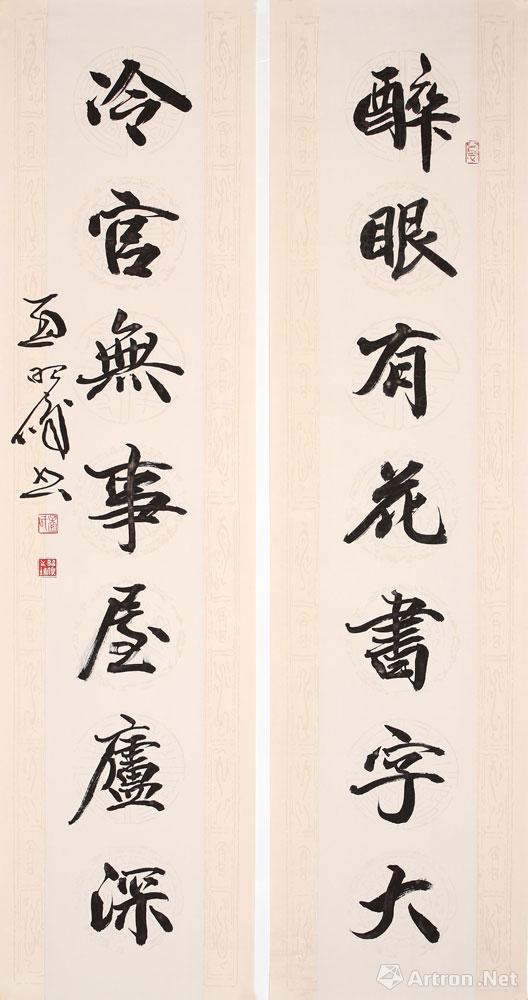 醉眼有花書字大
冷官無事屋廬深
Artron.Net